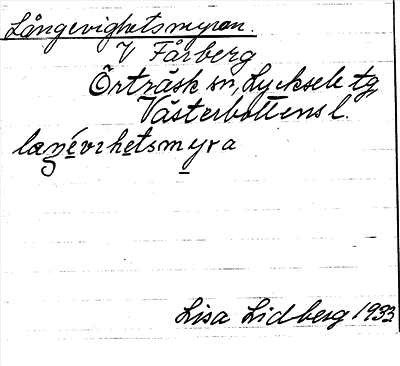 Långevighetsmyran.
V Fårberg
Örträsk sn, Lycksele tg,
Västerbottens l.
laŋévıhetsmyra
Lisa Lidberg 1933